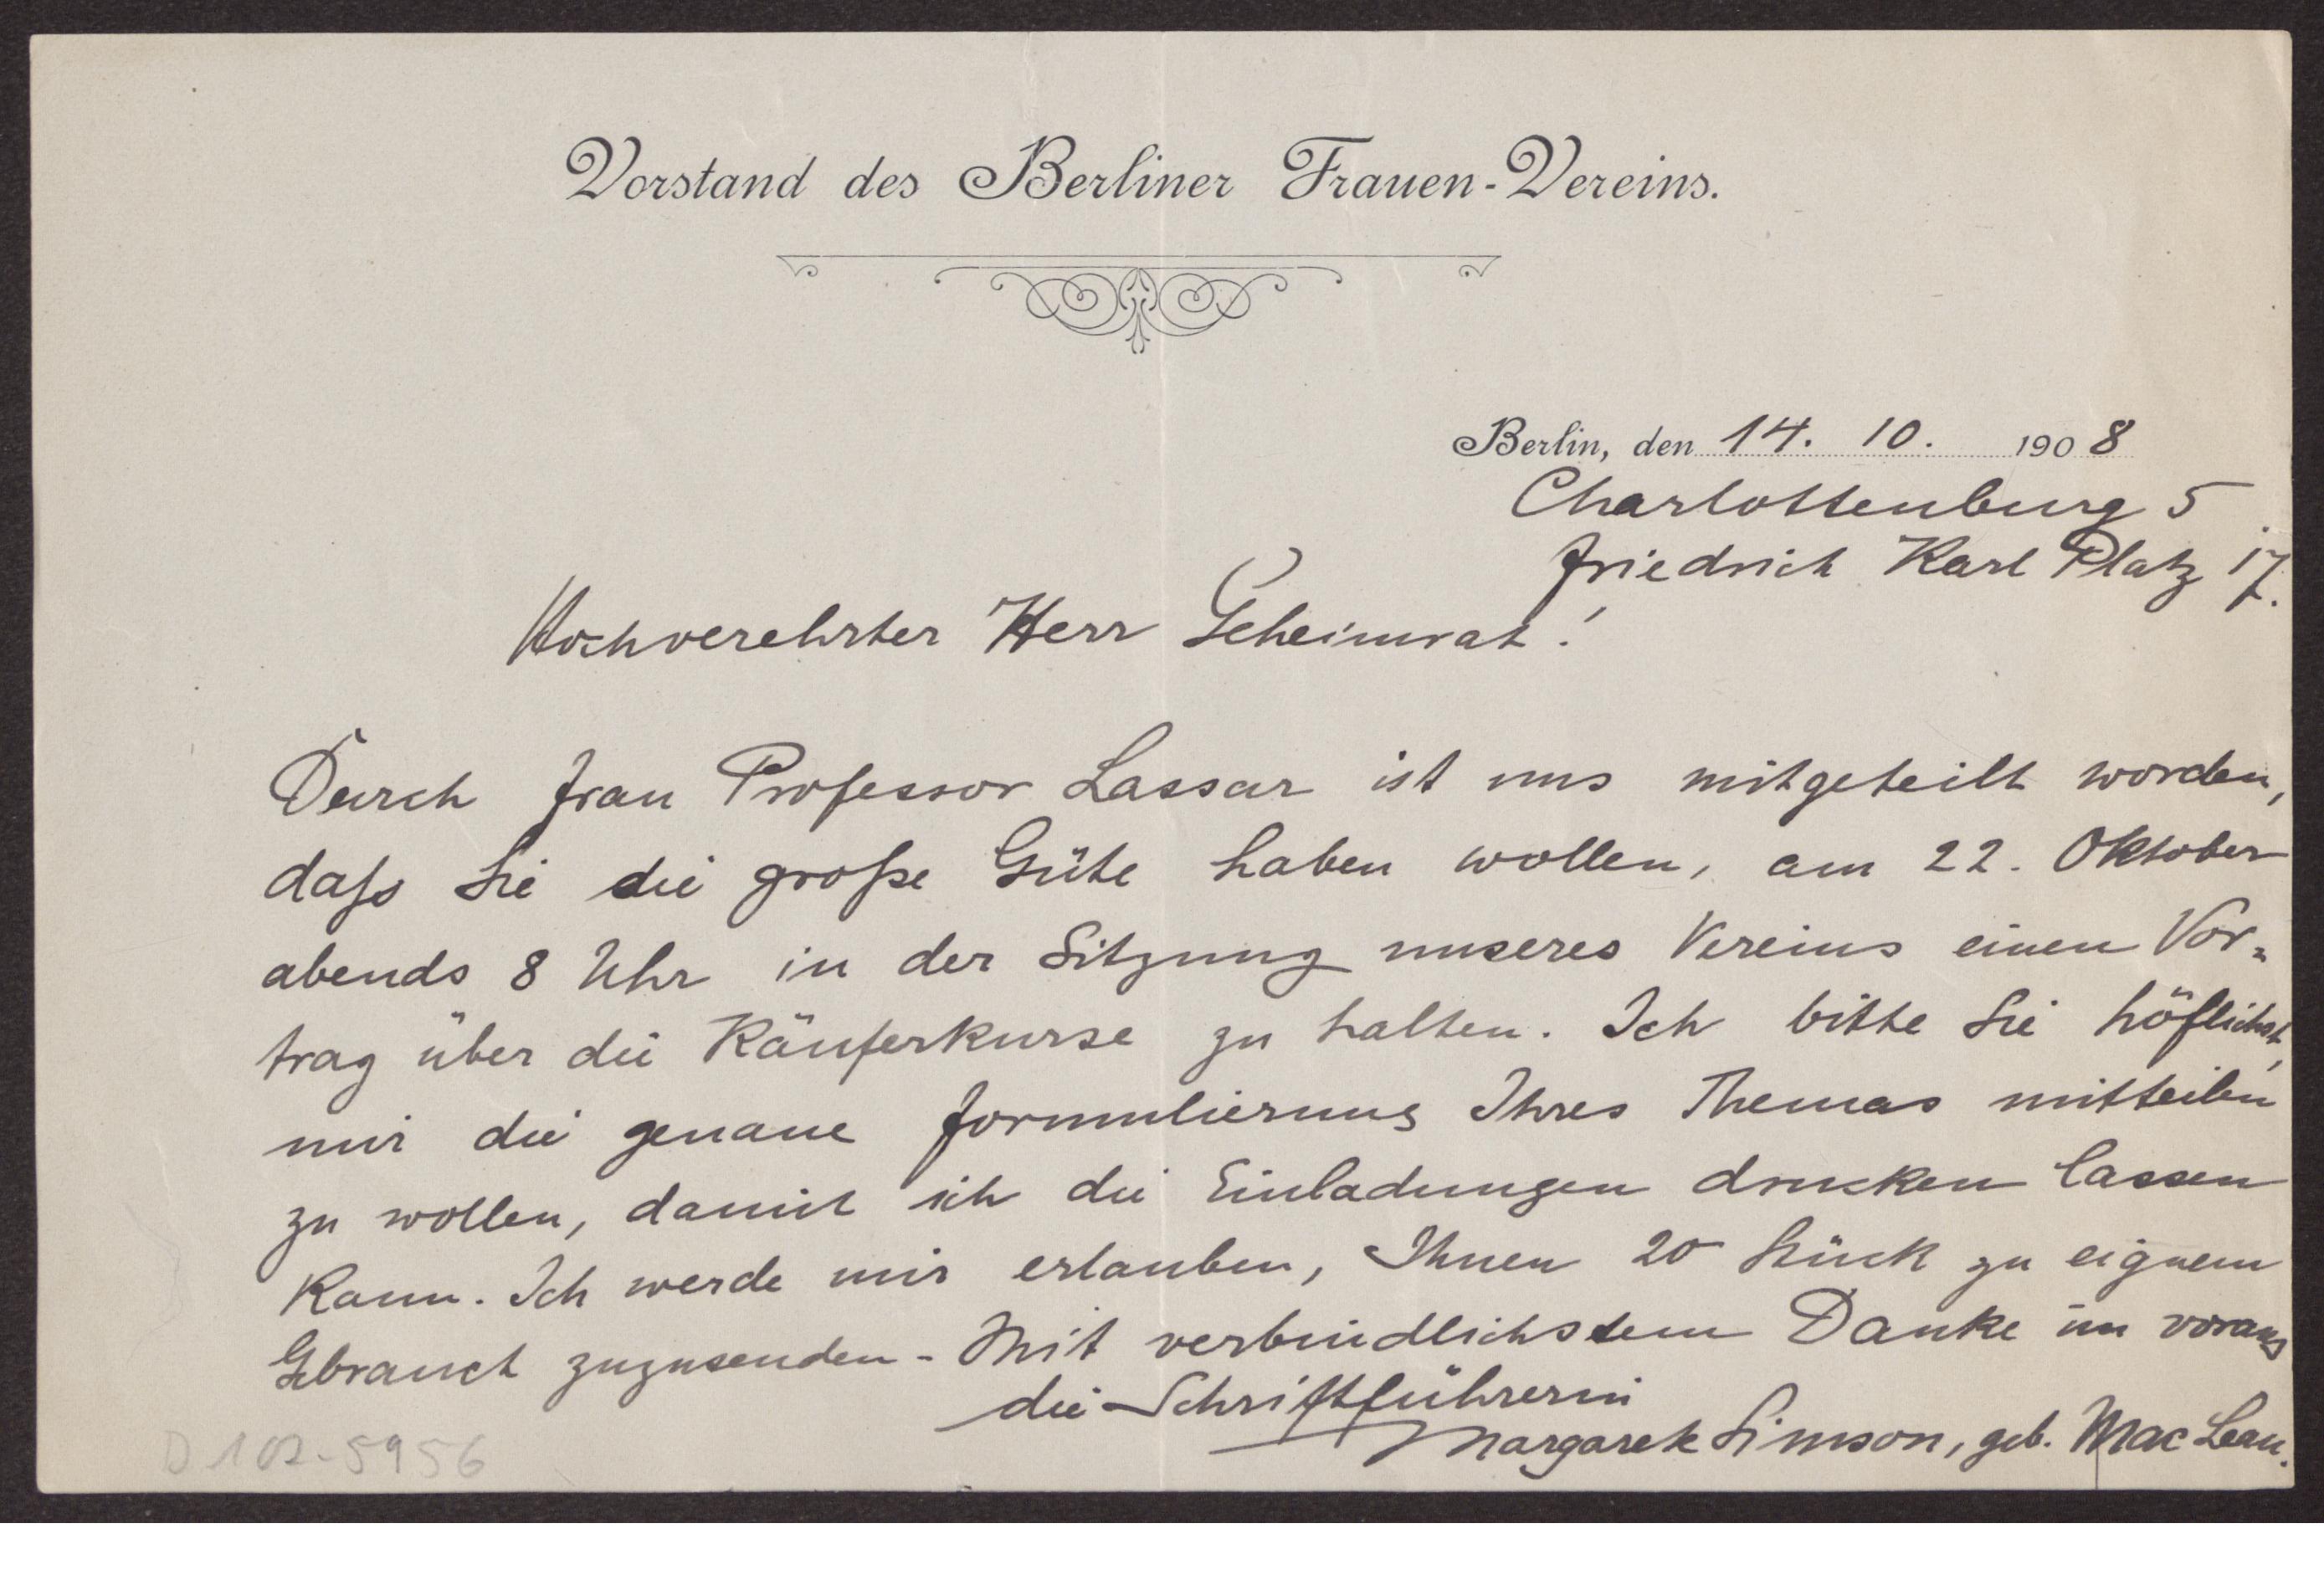 Vorstand des Berliner Frauen-Vereins.
Berlin, den 14. 10. 1908
Charlottenburg 5
Friedrich Karl Platz 17.
Hochverehrter Herr Geheimrat!
Durch Frau Professor Lassar ist uns mitgeteilt worden,
daß Sie die große Güte haben wollen, am 22. Oktober
abends 8 Uhr in der Sitzung unseres Vereins einen Vor=
trag über die Käuferkurse zu halten. Ich bitte Sie höflichst,
mir die genaue Formulierung Ihres Themas mitteilen
zu wollen, damit ich die Einladungen drucken lassen
kann. Ich werde mir erlauben, Ihnen 20 Stück zu eignem
Gebrauch zuzusenden - Mit verbindlichstem Danke im voraus
die Schriftführerin
Margarete Simson, geb. Mac Lean.
D 102-5956